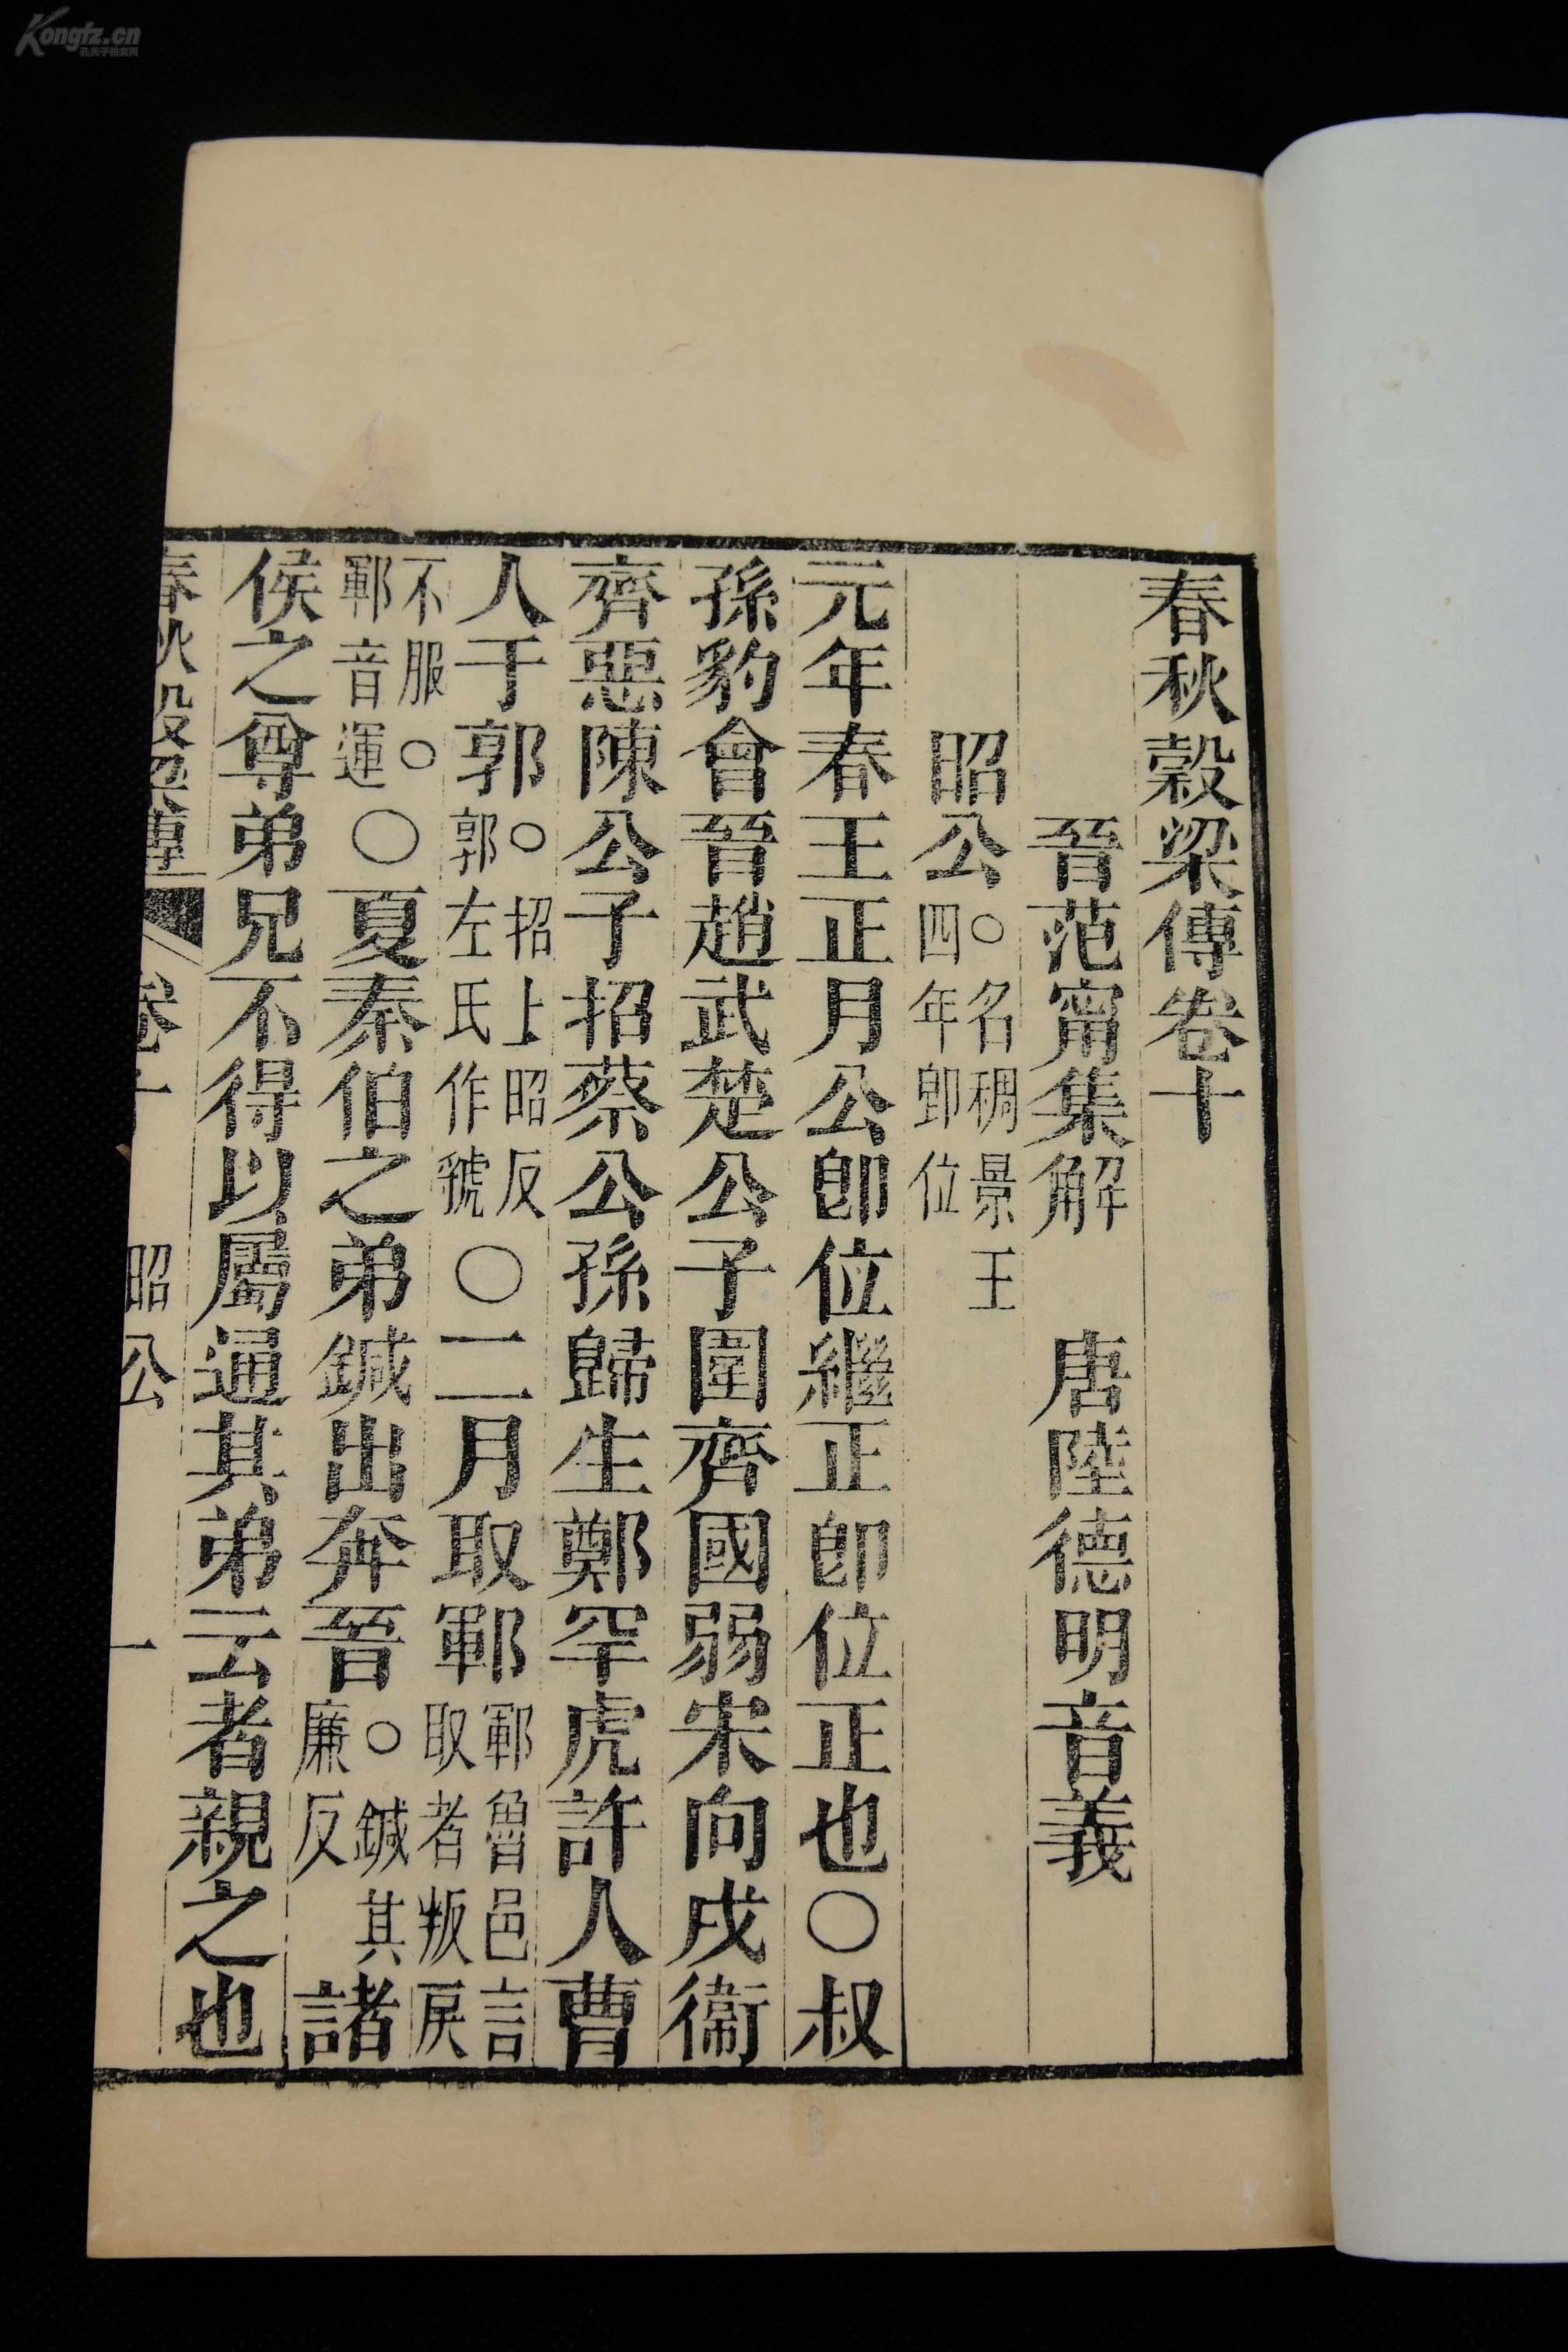 春秋穀梁傳卷十
晉范甯集解　唐陸德明音義
昭公○名稠景王四年卽位
元年春王正月公卽位繼正卽位正也○叔
孫豹會晉趙武楚公子圍齊國弱宋向戌衞
齊惡陳公子招蔡公孫歸生鄭罕虎許人曹
人于郭○招上昭反郭左氏作虢○二月取鄆鄆魯邑言取者叛戾
不服○鄆音運○夏秦伯之弟鍼出奔晉○鍼其廉反諸
侯之尊弟兄不得以屬通其弟云者親之也
春秋穀梁傳　卷十　昭公　一
Kongfz.cn
孔夫子拍卖网